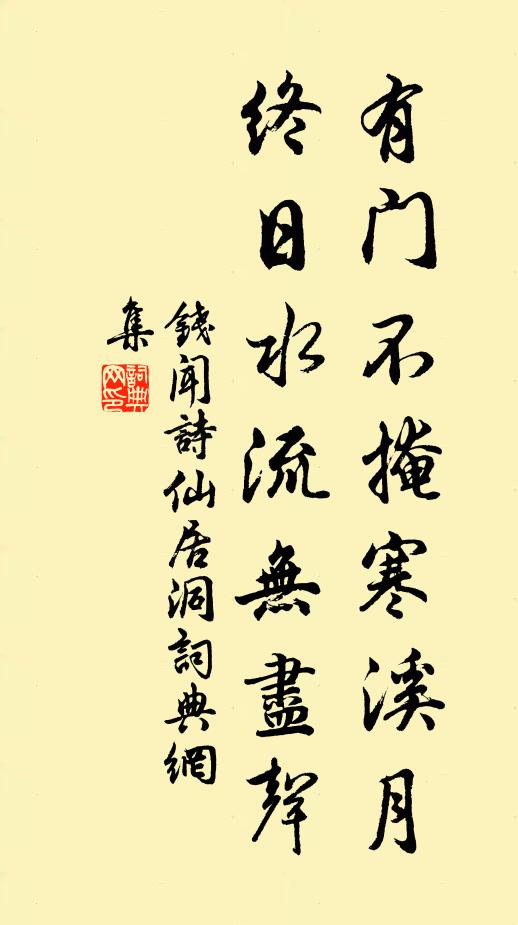 有門不掩寒溪月
終日水流無盡聲
錢聞詩仙居洞詞典網
集
詞典
网印